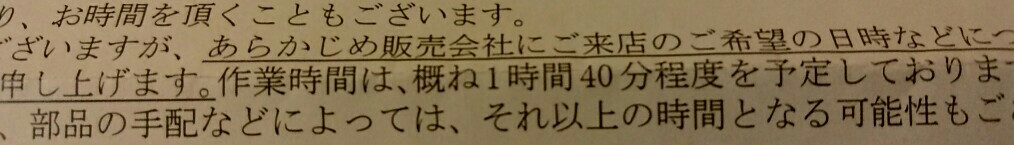 り、お時間を頂くこともございます。
ございますが、あらかじめ販売会社にご来店のご希望の日時などにつ
申し上げます。作業時間は、概ね1時間40分程度を予定しておりま
、部品の手配などによっては、それ以上の時間となる可能性もご